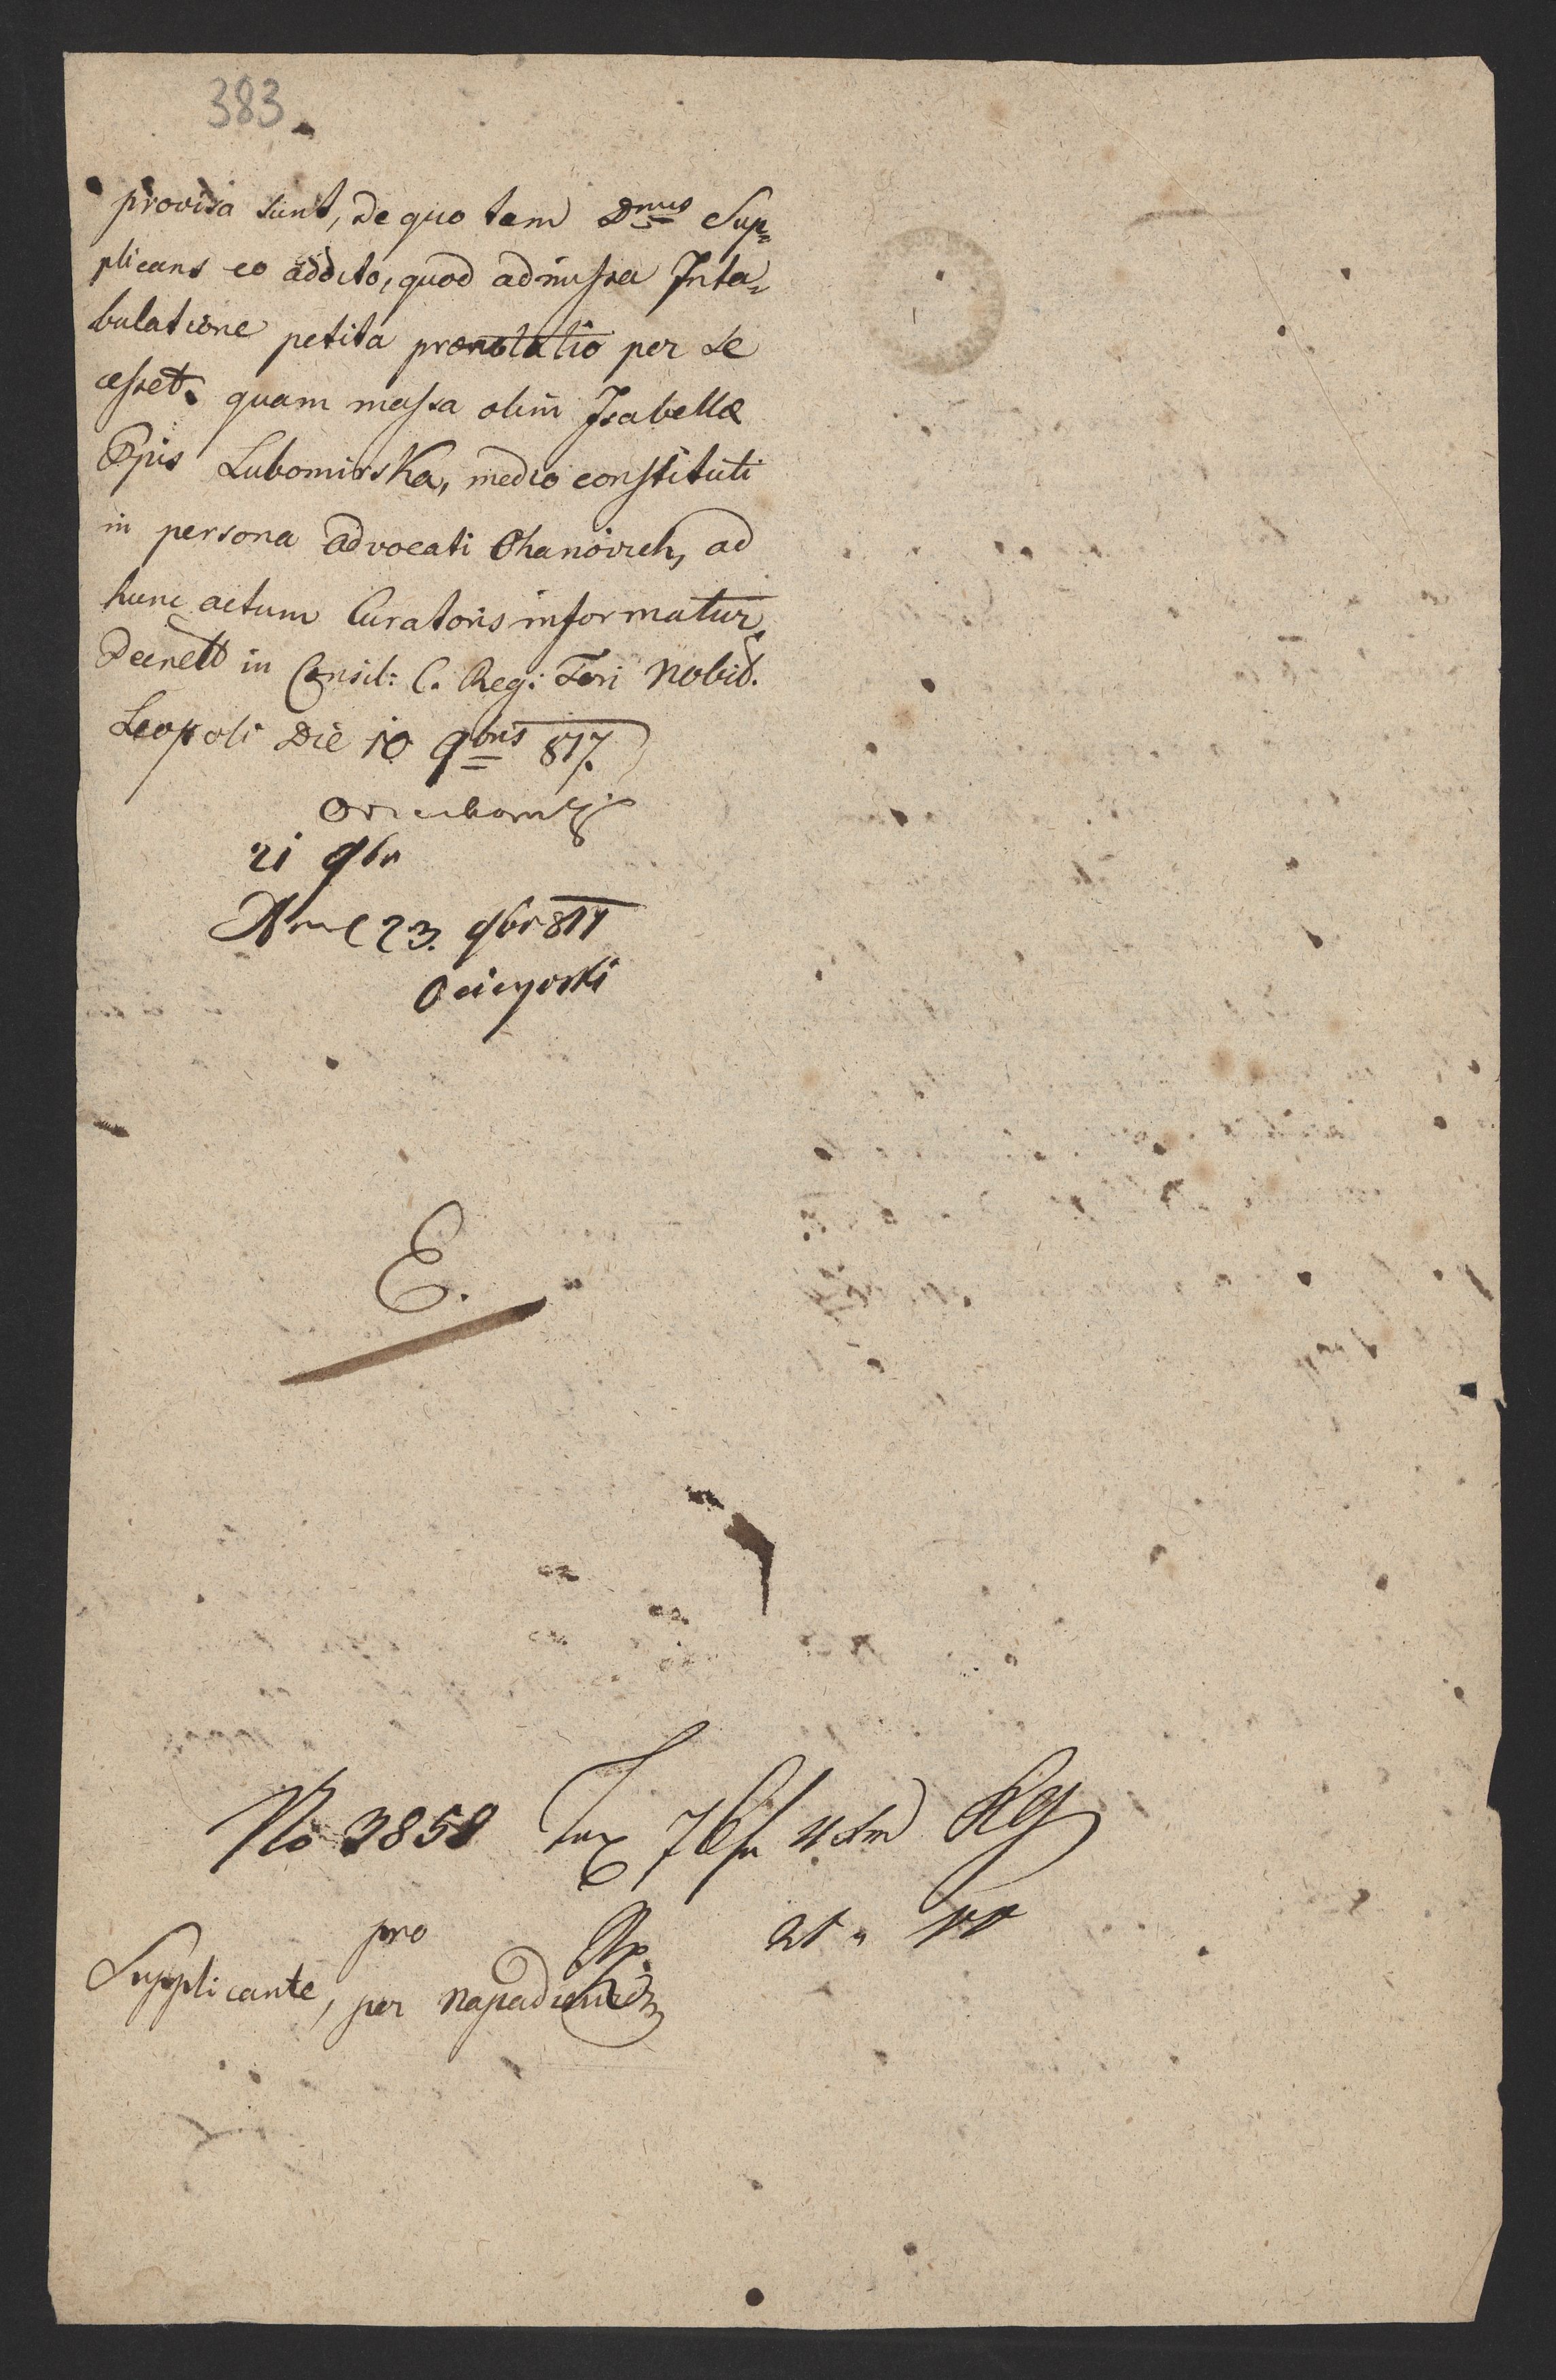 383.
provisa sunt, de quo tam Dnus Sup=
plicans eo addito, quod admissa Inta=
bulatione petita prænotatio per se
cesset. quam massa olim Isabellæ
Ppis Lubomirska, medio constituti
in persona advocati Ohanovich, ad
hunc actum Curatoris informatur.
in Consil: C. Reg: Fori Nobil.
Leopoli Die 10 9bris 817.
21 9br
23. 9br 817
E.
No 3858 Tax 7
pro
Supplicante, per